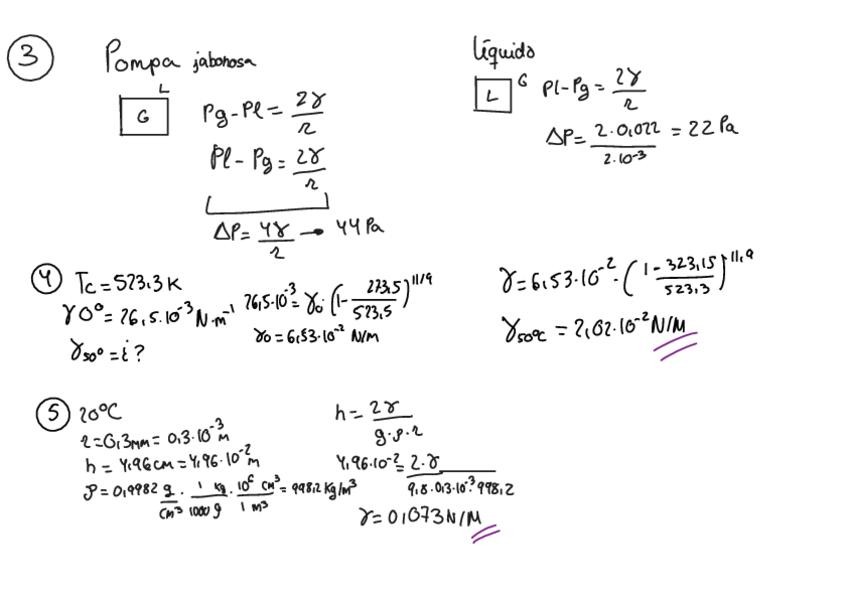 3 Pompa jabonosa
L
G
Pg-Pl = 2γ/r
Pl-Pg = 2γ/r
ΔP = 4γ/r → 44 Pa
líquido
L G
Pl-Pg = 2γ/r
ΔP = 2·0,022/2·10⁻³ = 22 Pa
4 Tc = 523,3 K
γ0° = 26,5·10⁻³ N·m⁻¹
γ50° = ¿?
26,5·10⁻³ = γ0·(1- 273,5/523,5)^11/9
γ0 = 6,53·10⁻² N/m
γ = 6,53·10⁻²·(1- 323,15/523,3)^11,9
γ50ºC = 2,02·10⁻² N/M
5 20ºC
r = 0,3mm = 0,3·10⁻³ m
h = 4,96 cm = 4,96·10⁻² m
ρ = 0,9982 g/cm³ · 1 kg/1000 g · 10⁶ cm³/1 m³ = 998,2 kg/m³
h = 2γ/g·ρ·r
4,96·10⁻² = 2·γ/9,8·0,3·10⁻³·998,2
γ = 0,073 N/M